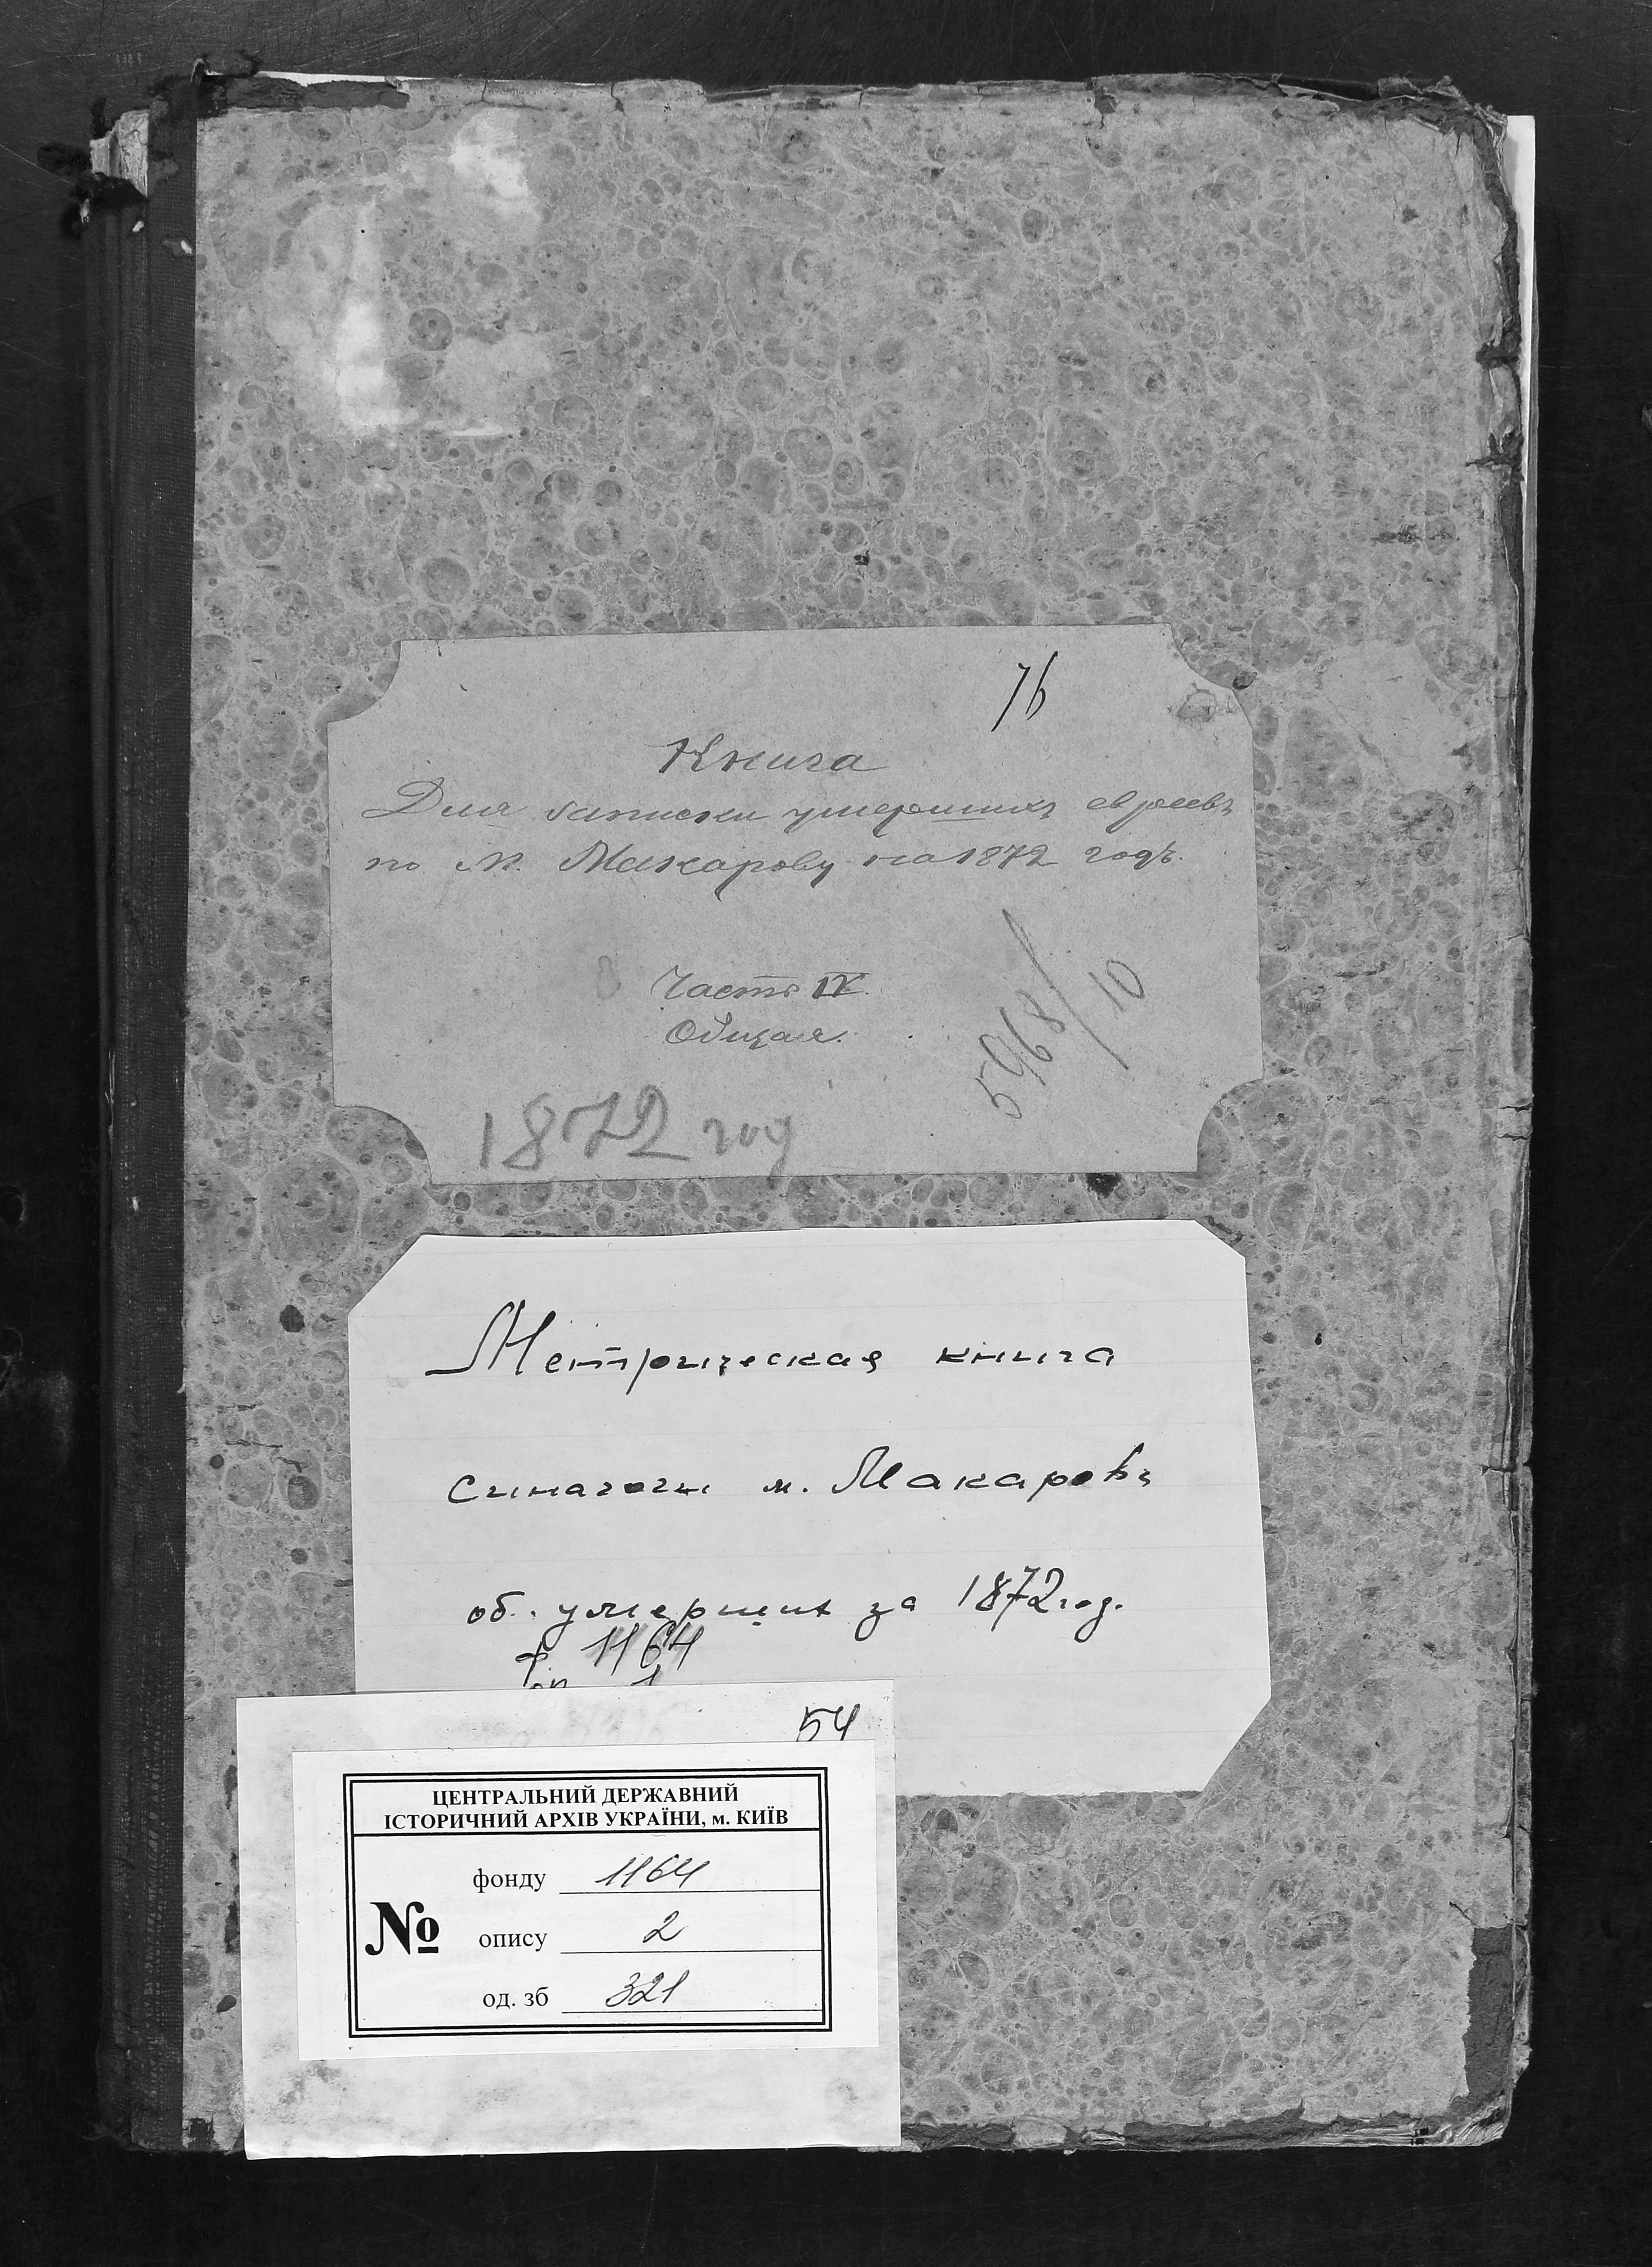 76
Книга
Для записки умершихъ евреевъ
по м. Макарову на 1872 годъ.
Часть IV.
Общая.
5968/10
1872 год
Метрическая книга
синагоги м. Макаровъ
об. умерших за 1872 год.
ф. 1164
оп 1
54
ЦЕНТРАЛЬНИЙ ДЕРЖАВНИЙ
ІСТОРИЧНИЙ АРХІВ УКРАЇНИ, м. КИЇВ
№
фонду 1164
опису 2
од. зб 321